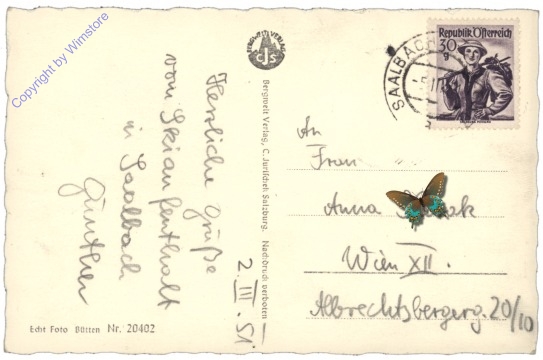 Copyright by Wimstore
BERGWELT-VERLAG
CJS
Herzliche Grüße
vom Skiaufenthalt
in Saalbach
Günther
2. III. 51
Bergwelt Verlag, C. Jurischek Salzburg. Nachdruck verboten
Echt Foto Bütten Nr. 20402
SAALBACH
Republik Österreich
30
g
An
Frau
Anna
Wien XII.
Albrechtsbergerg. 20/10